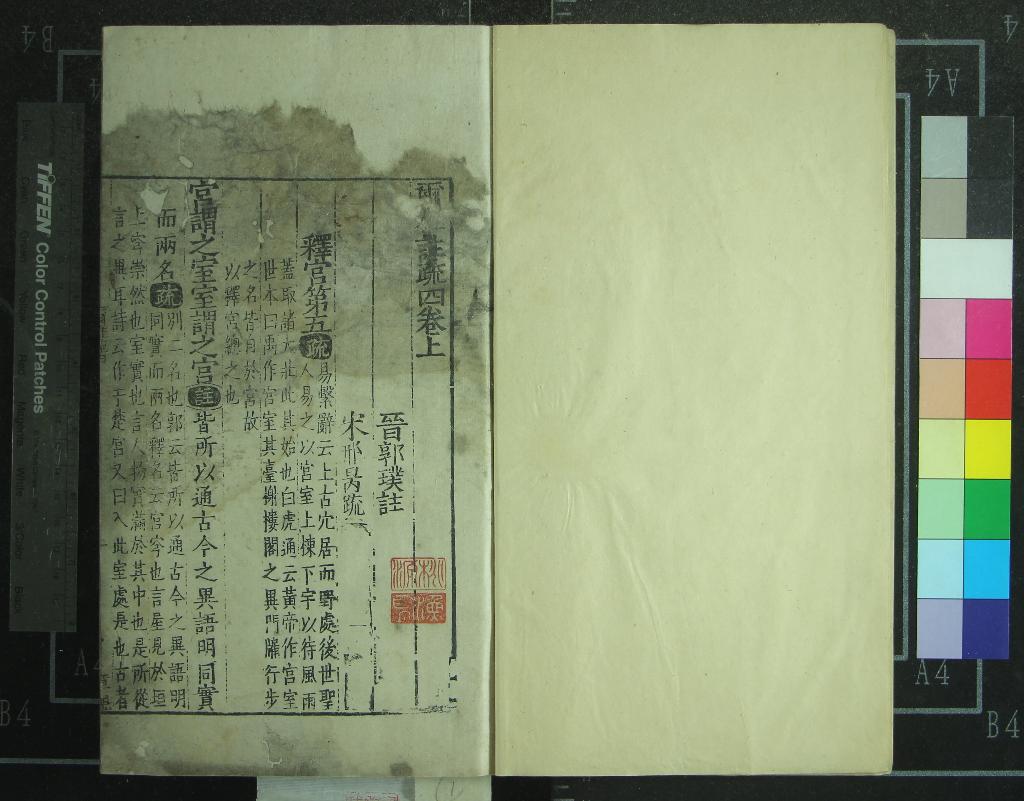 爾雅註疏四卷上
晉郭璞註
宋邢昺疏
釋宮第五
疏
易繫辭云上古穴居而野處後世聖
人易之以宮室上棟下宇以待風雨
蓋取諸大壯此其始也白虎通云黃帝作宮室
世本曰禹作宮室其臺榭樓閣之異門牖行步
之名皆自於宮故
以釋宮總之也
宮謂之室室謂之宮
註
皆所以通古今之異語明同實
而兩名
疏
別二名也郭云皆所以通古今之異語明
同實而兩名釋名云宮穹也言屋見於垣
上穹崇然也室實也言人物實滿於其中也是所從
言之異耳詩云作于楚宮又曰入此室處是也古者
TIFFEN Color Control Patches
A4
A4
B4
B4
B4